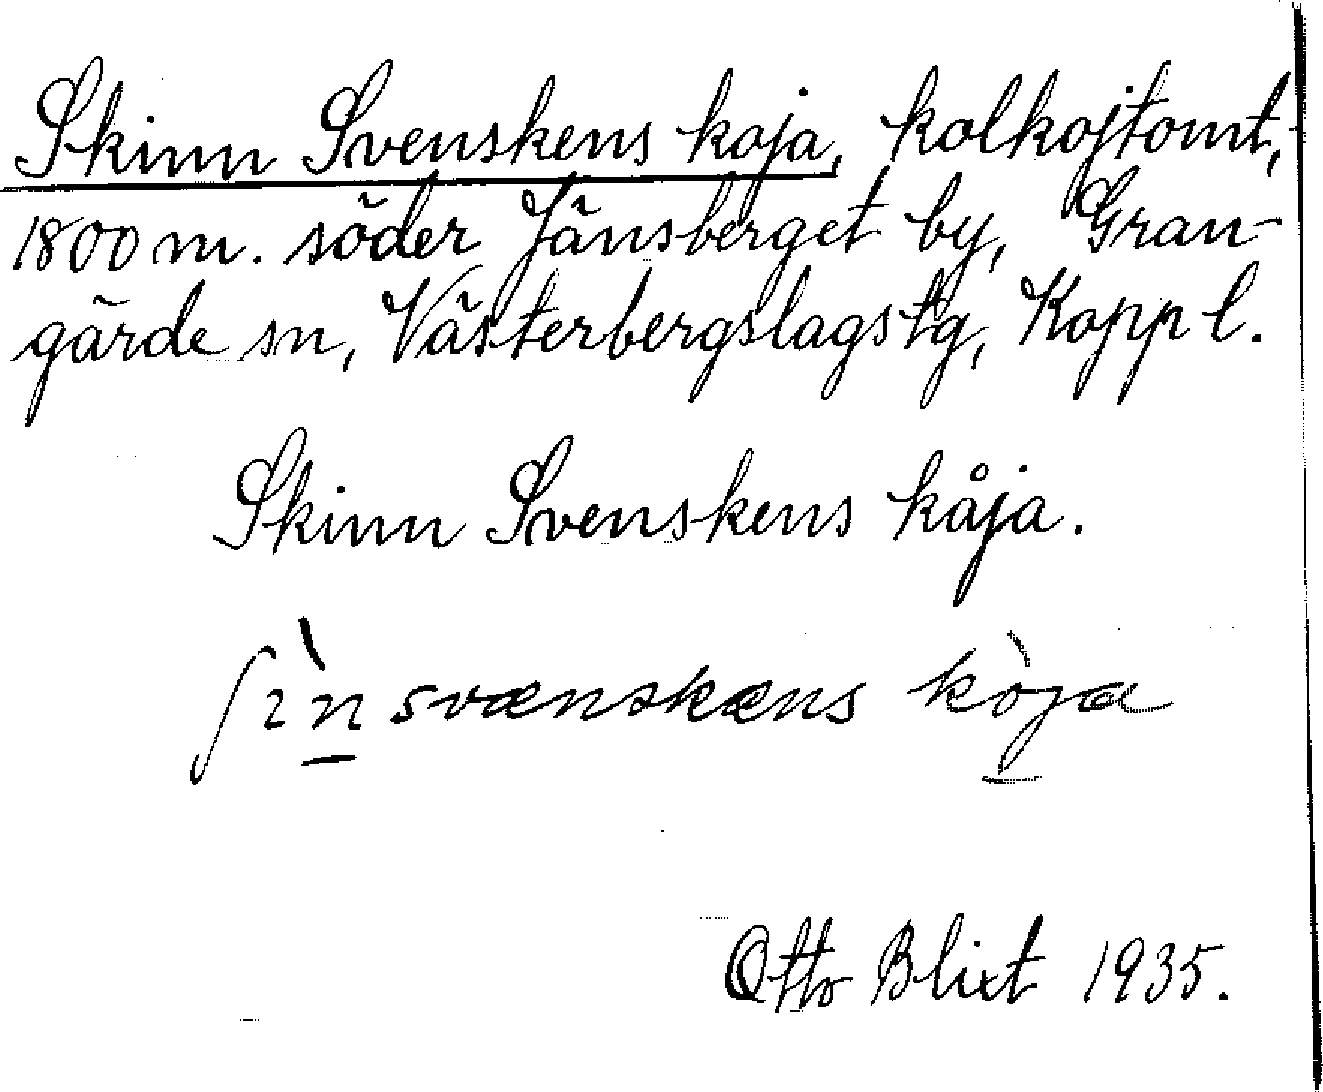 Skinn Svenskens koja, kolkojtomt,
1800 m. söder Jänsberget by, Gran-
gärde sn, Västerbergslags tg, Kopp l.
Skinn Svenskens kåja.
ʃɪ̀n svænskæns kòja
Otto Blixt 1935.